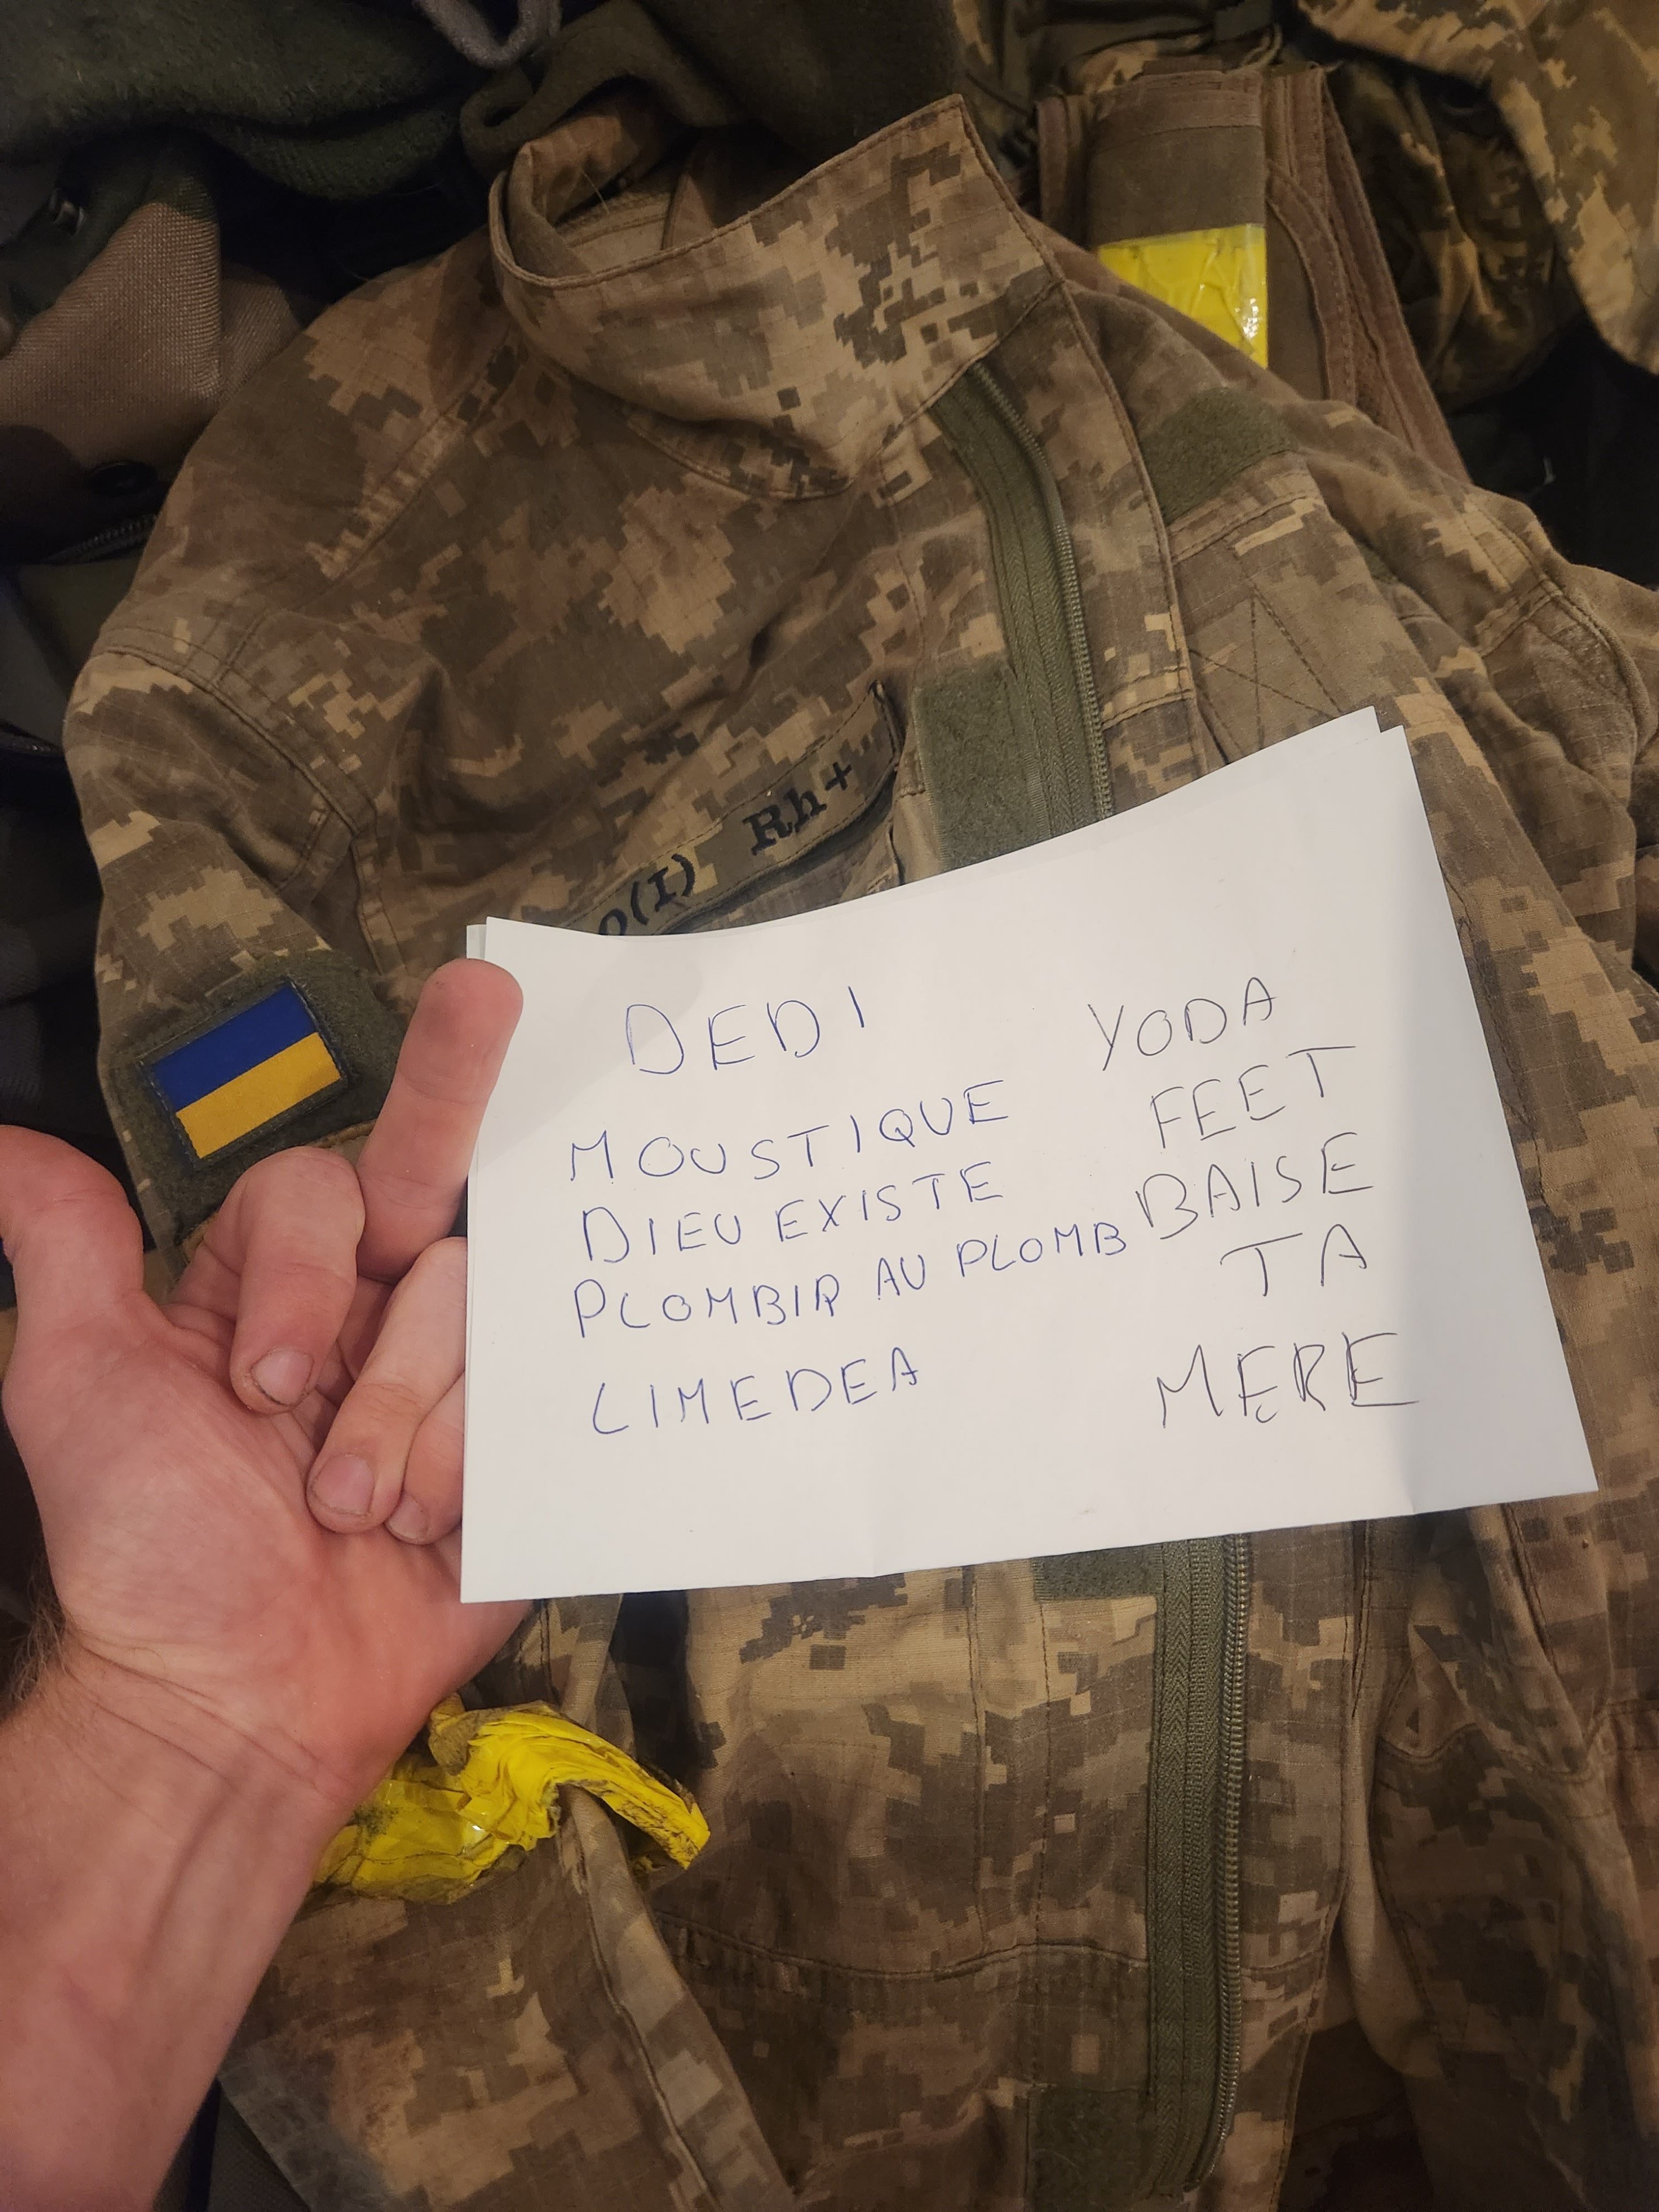 O(I) Rh+
DEDI
MOUSTIQUE
DIEU EXISTE
PLOMBIR AU PLOMB
LIMEDEA
YODA
FEET
BAISE
TA
MERE